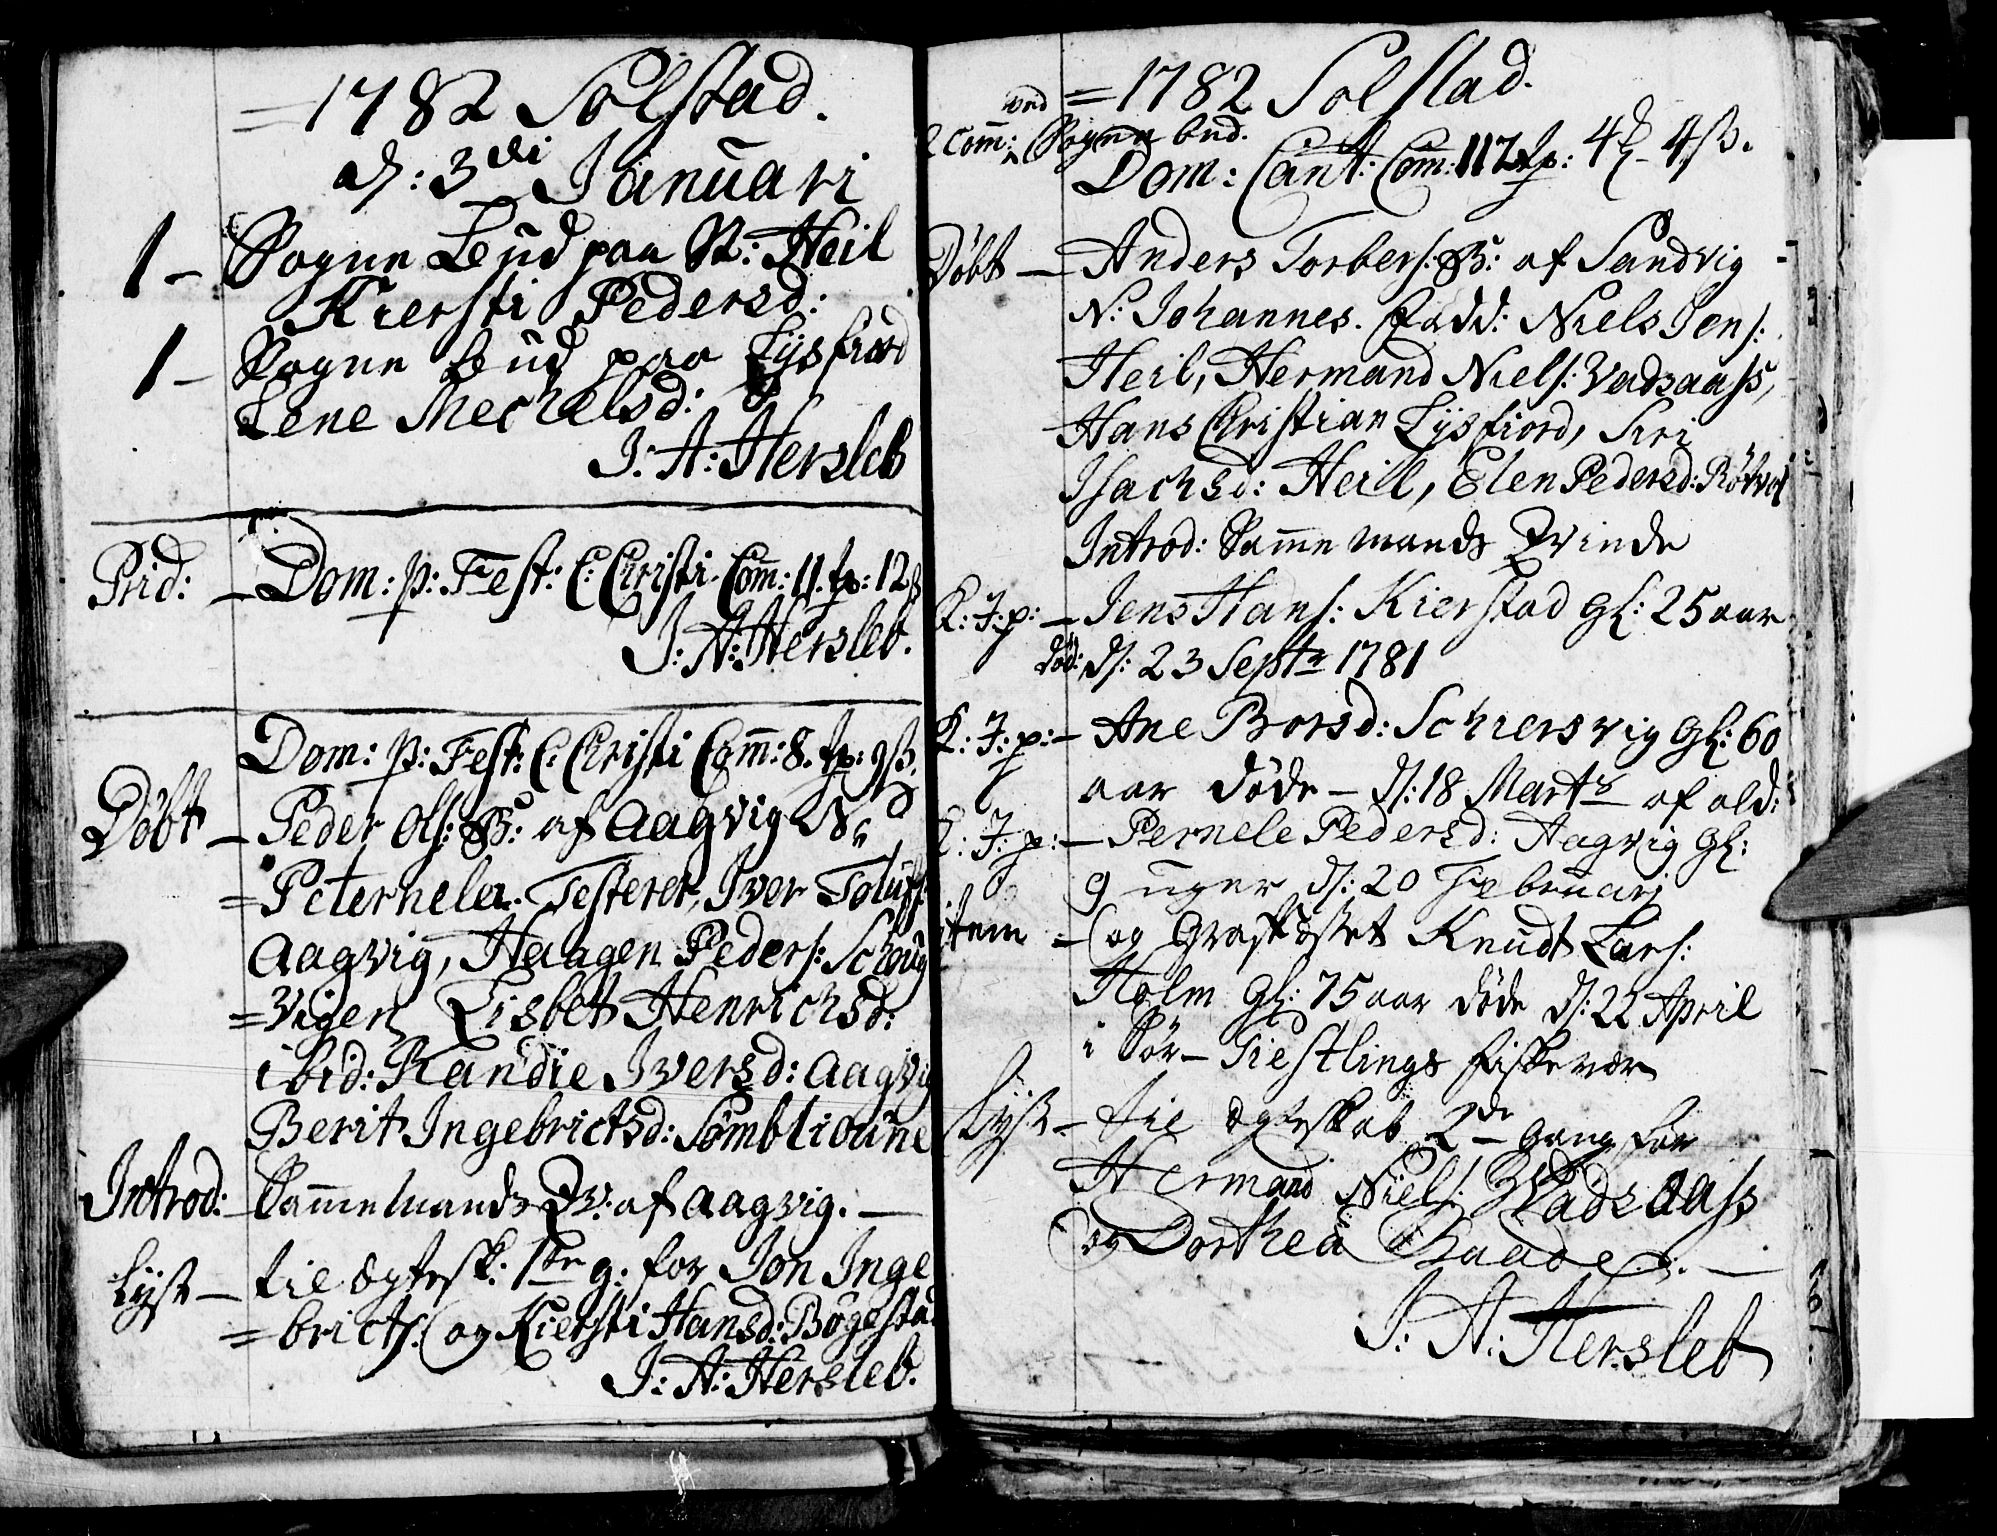 = 1782 Solstad.
d: 3 di Januari
1 – Sogne Bud paa N: Heil
Kiersti Pedersd:
1 – Sogne Bud paa Lysfiord
Lene Mechelsd:
J: A: Hersleb
Prid: – Dom: p: Fest: C: Christi Com: 11. tp: 12 ß
J: A: Hersleb.
Dom: p: Fest: C: Christi Com: 8. tp: 9 ß.
Døbt – Peder Ols: B: af Aagvig N:
= Peternelea. Testerer, Iver Toluffs:
Aagvig, Haagen Peders: Schoug
= vigen Lisbet Henrichsd:
ibid: Randie Iversd: Aagvig
Berit Ingebrictsd: Sömblioune
Introd: – Samme Mands Qv: af Aagvig. –
Lyst – til ægtesk: 1ste g: for Jon Inge
= bricts: og Kiersti Hansd: Bögestad
J: A: Hersleb.
= 1782 Solstad.
2 Com: ved Sogne bud.
Dom: Cant: Com: 112 tp: 4 – 4 ß.
Døbt – Anders Torbers: B: af Sandvig
N: Johannes. Fadd: Niels Jens:
Heil, Hermand Niels: Vadsaass,
Hans Christian Lysfiord, Siri
Isachsd: Heill, Elen Pedersd: Røtvol
Introd: Samme mands Qvinde
K: J: p: – Jens Hans: Kierstad Gl: 25 aar
död: d: 23 Septr 1781
K: J: p: – Ane Borsd: Schiersvig Gl: 60
aar døde – d: 18 Marts af ald:
K: J: p: – Pernele Pedersd: Aagvig Gl:
9 uger d: 20 Februari
item – og Graffæstet Knudt Lars:
Holm Gl: 75 aar døde d: 22 April
i Sør – Tiestlings fiskevær
Lyst – til ægteskab 2den gang for
Hermand Niels: Vadsaass
og Dorthea Baade. –
J: A: Hersleb